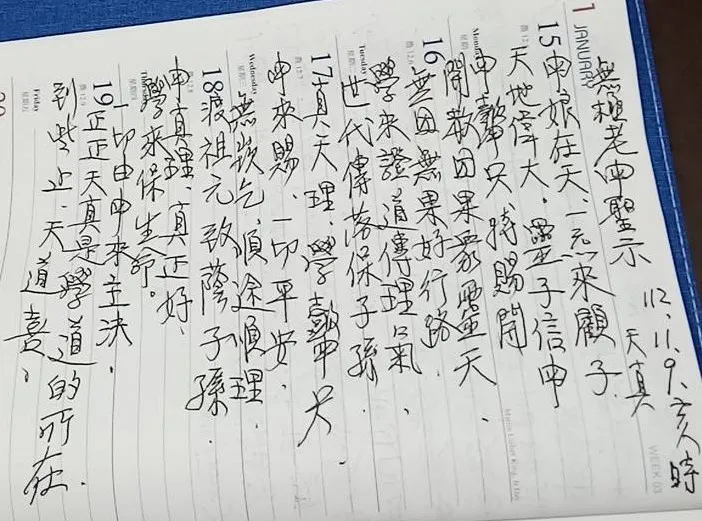 無極老申聖示
112.11.9.亥時
天真
申娘在天、一点來顧子.
天地偉大.靈子信申
申聲只特賜開
開啟因果眾靈天、
無因無果好行路
學來證道傳理氣、
世代傳落保子孫.
真天理.學聲申只.
申來賜.一切平安.
無崁屹順途順理.
渡祖元致蔭子孫.
申真理.真正好、
學來保生命。
一切由申來主決.
正正天真是學道的所在.
到此止.天道喜.
1 JANUARY
WEEK 03
15
Monday
16
Tuesday
17
Wednesday
18
19
Friday
星期五
20